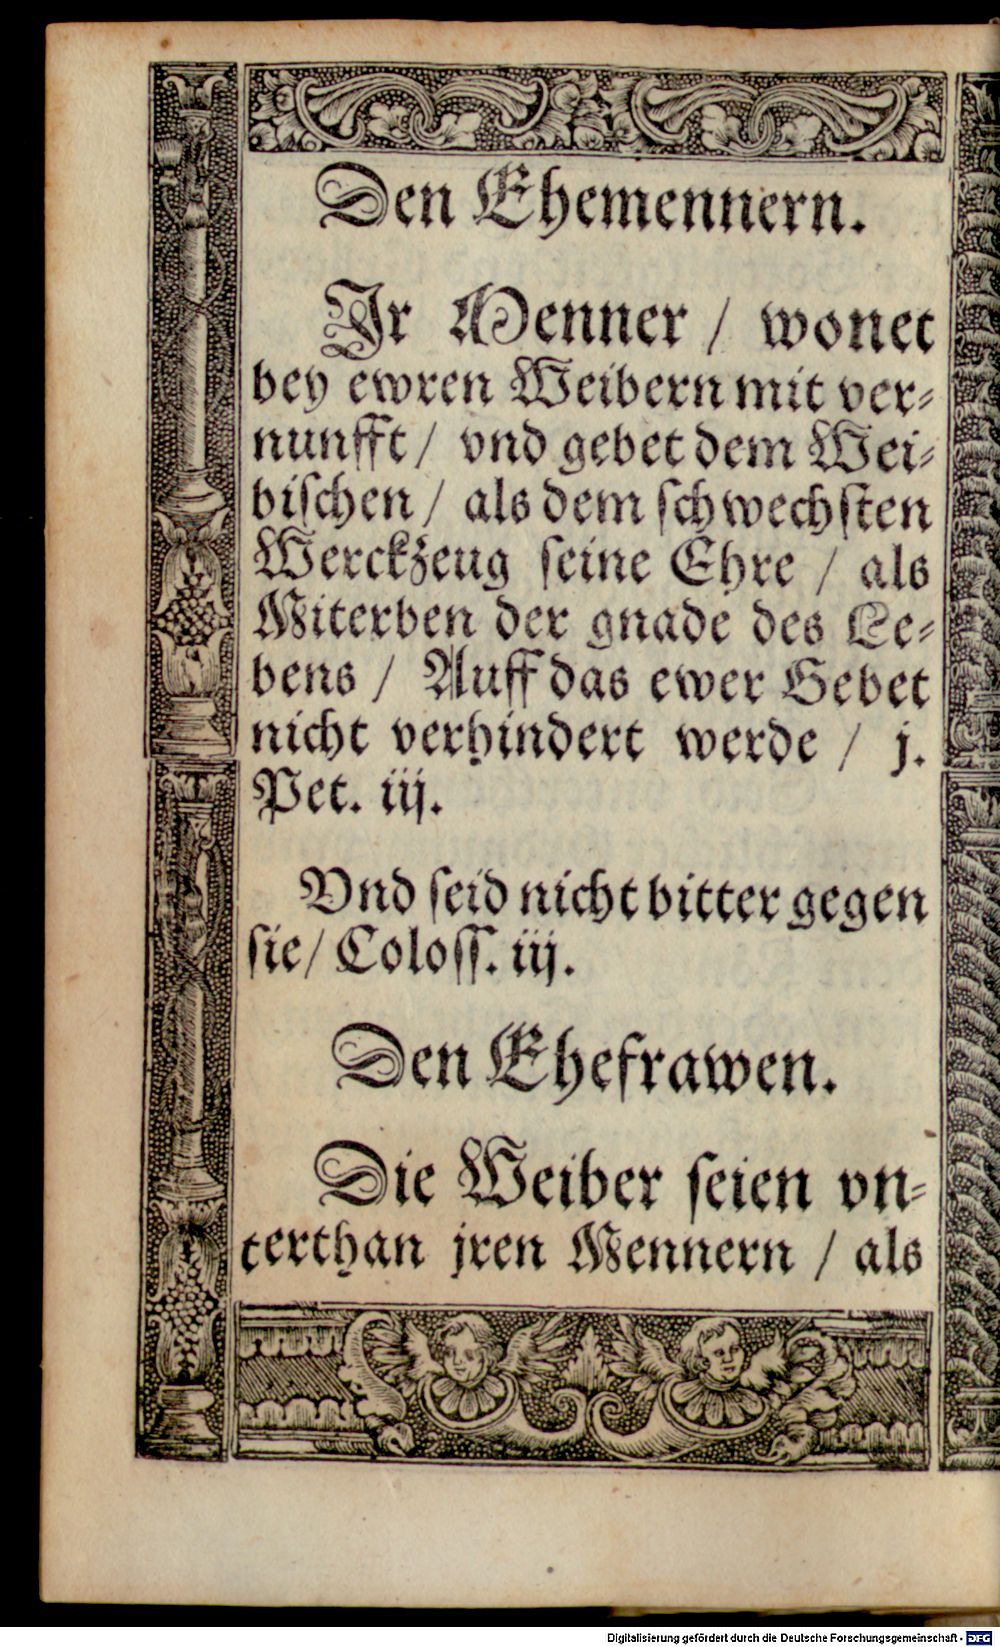 Den Ehemennern.
Jr Menner / wonet
bey ewren Weibern mit ver⸗
nunfft / vnd gebet dem Wei⸗
biſchen / als dem ſchwechſten
Werckzeug ſeine Ehre / als
Miterben der gnade des Le⸗
bens / Auff das ewer Gebet
nicht verhindert werde / j.
Pet. iij.
Vnd ſeid nicht bitter gegen
ſie / Coloſſ. iij.
Den Ehefrawen.
Die Weiber ſeien vn⸗
terthan jren Mennern / als
Digitalisierung gefördert durch die Deutsche Forschungsgemeinschaft - DFG